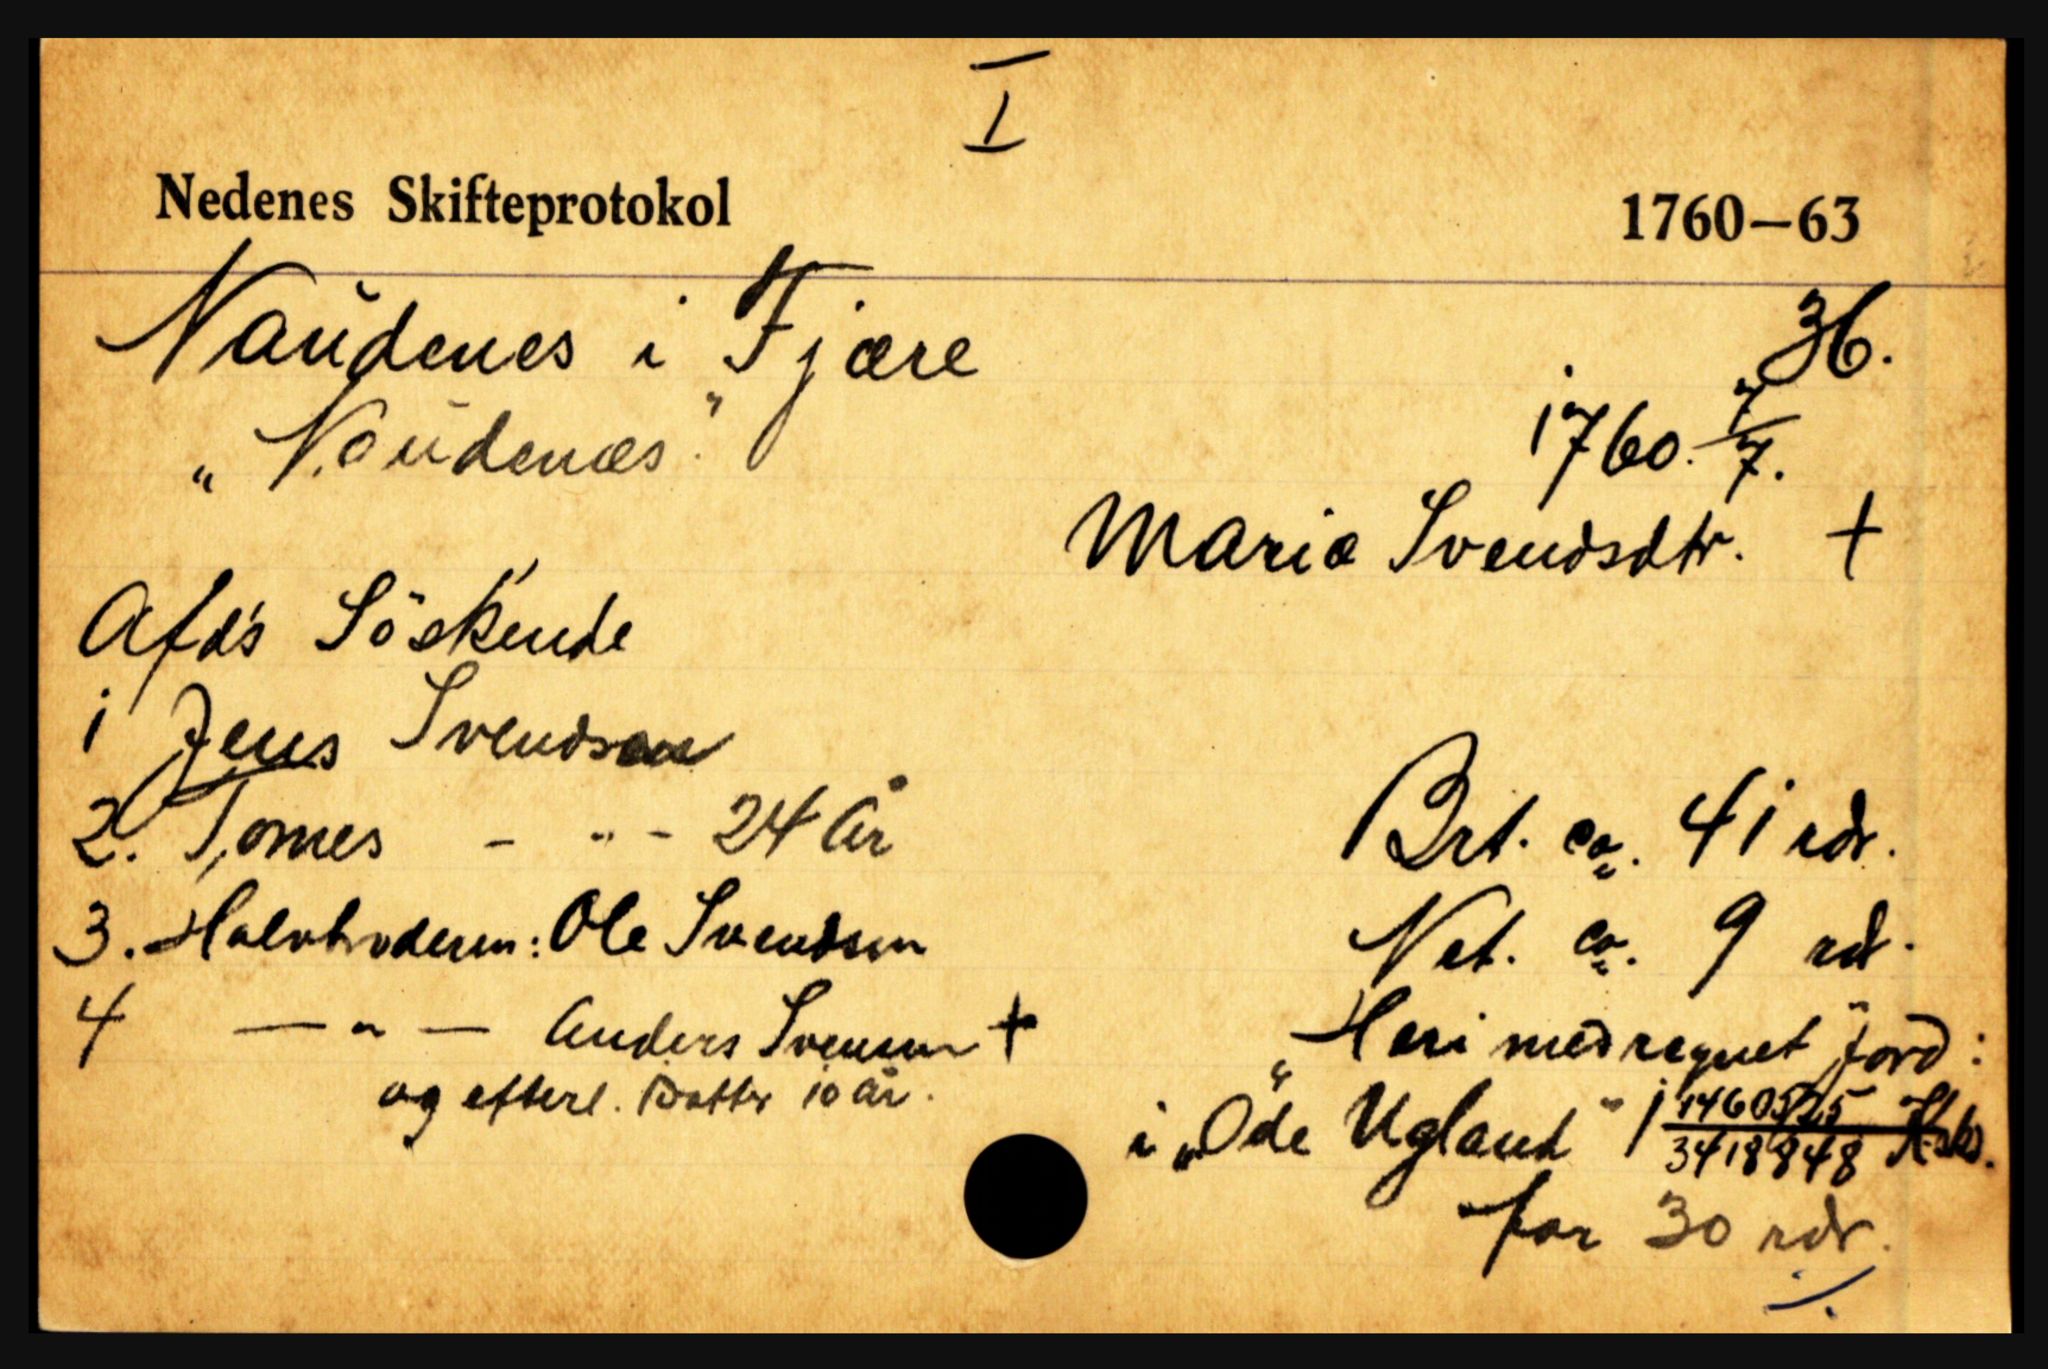 I
Nedenes Skifteprotokol 1760–63
Naŭdenes i Fjære 36.
„Noŭdenæs" 1760. 7/7.
Maria Svendsdtr. +
Afd's Söskende
1 Jens Svendsen
2. Tomes - " - 24 År
3. Halvbroderen: Ole Svendsen
4 — " — Anders Svensen +
og efterl. Datter 10 år.
Brt. ca. 41 rdr.
Net. ca. 9 rd.
„Heri medregnet Jord:
i „Öde Ugland" 1 1460525/3418848 Hsk.
for 30 rdr.